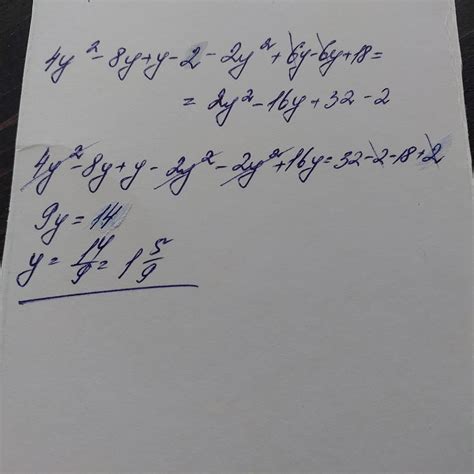 4y² - 8y + y - 2 - 2y² + 6y - 6y + 18 =
= 2y² - 16y + 32 - 2
4y² - 8y + y - 2y² - 2y² + 16y = 32 - 2 - 18 + 2
9y = 14
y = 14/9 = 1 5/9